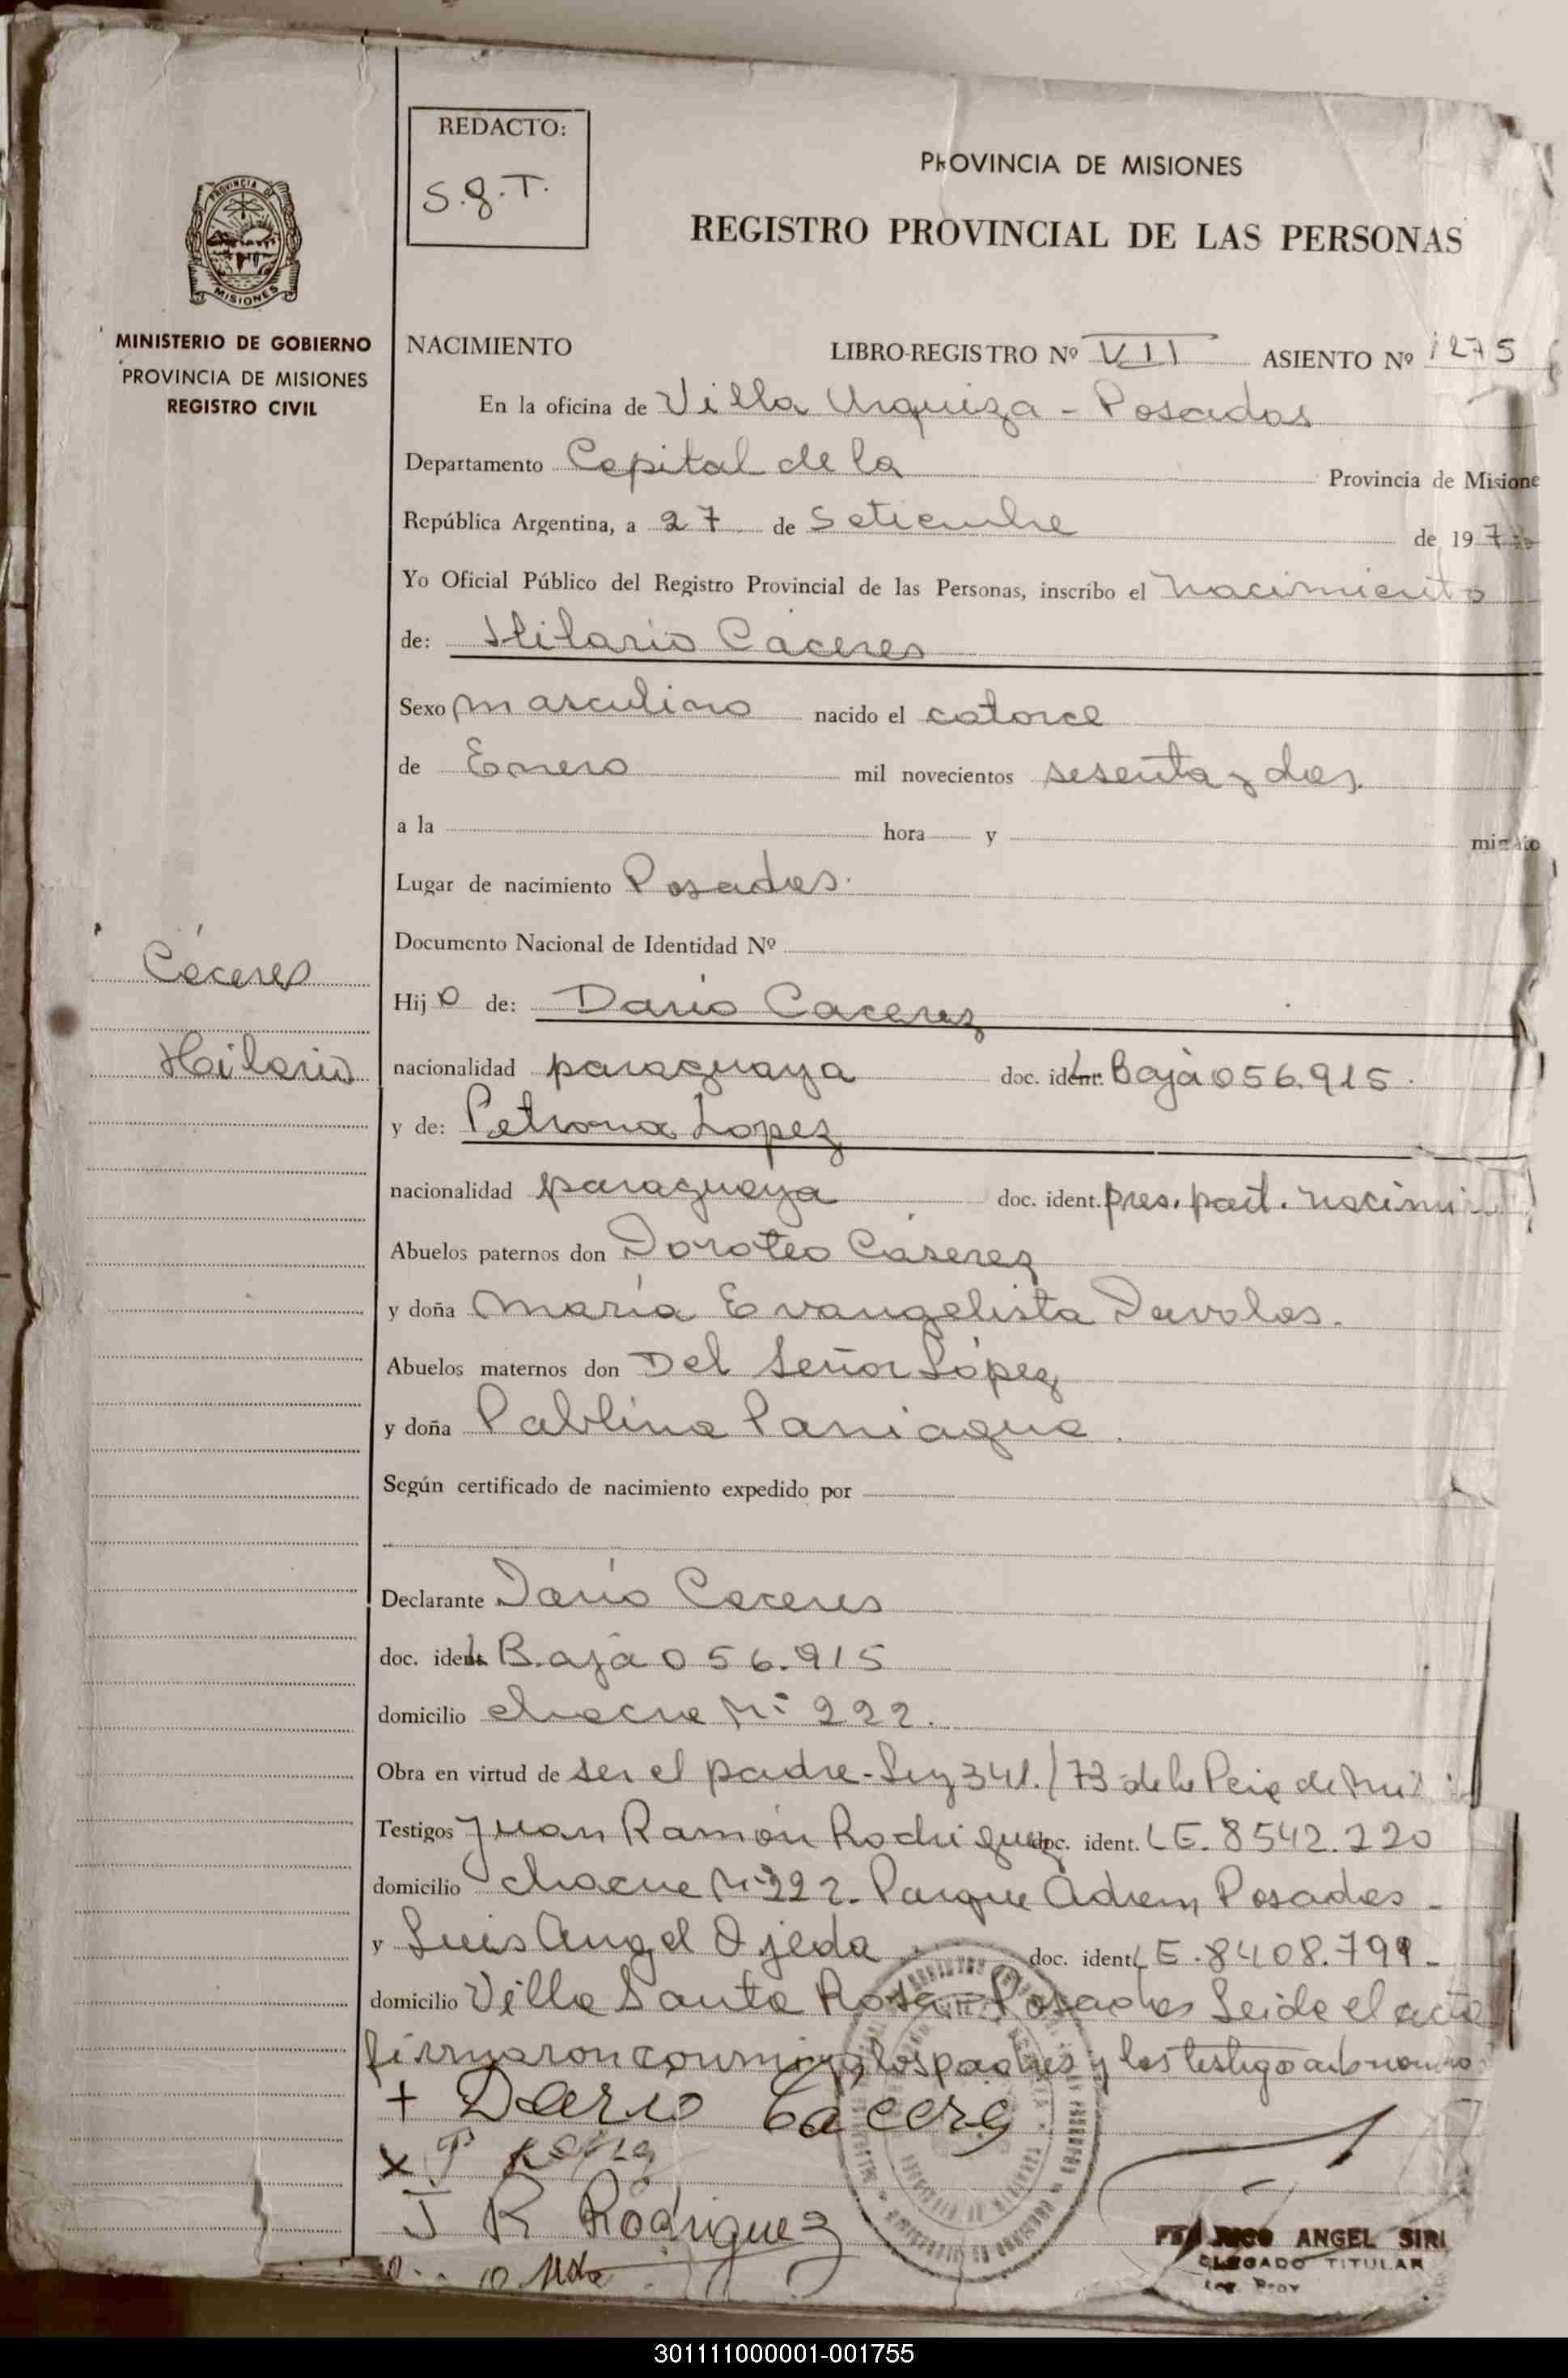 REDACTO:
S.g.T.
PROVINCIA DE MISIONES
REGISTRO PROVINCIAL DE LAS PERSONAS
PROVINCIA DE
MISIONES
MINISTERIO DE GOBIERNO
PROVINCIA DE MISIONES
REGISTRO CIVIL
NACIMIENTO LIBRO-REGISTRO Nº VII ASIENTO Nº 1275
En la oficina de Villa Urquiza - Posadas
Departamento Capital de la Provincia de Misione
República Argentina, a 27 de Setiembre de 197
Yo Oficial Público del Registro Provincial de las Personas, inscribo el nacimiento
de: Hilario Caceres
Sexo masculino nacido el catorce
de Enero mil novecientos sesenta y dos.
a la hora y
Lugar de nacimiento Posadas.
Documento Nacional de Identidad Nº
Cáceres
Hilario
Hijo de: Dario Caceres
nacionalidad paraguaya doc. ident. Baja 056.915.
y de: Petrona Lopez
nacionalidad paraguaya doc. ident. pres. part. nacimi
Abuelos paternos don Doroteo Cáserez
y doña María Evangelista Davalos.
Abuelos maternos don Del Señor López
y doña Pablina Paniagua.
Según certificado de nacimiento expedido por
Declarante Darío Caceres
doc. ident. Baja 056.915
domicilio chacra Nº 222.
Obra en virtud de ser el padre - Ley 341./73 de la Pcia de
Testigos Juan Ramón Rodriguez doc. ident. LE. 8542.220
domicilio chacra Nº 222. Parque Adam, Posadas -
y Luis Angel Ojeda doc. ident. LE. 8408.799 -
domicilio Villa Santa Rosa - Posadas Leida el acta
firmaron conmigo los padres y los testigos
+ Dario Cácere
x P
J R Rodriguez
ANGEL SIRI
DELEGADO TITULAR
301111000001-001755